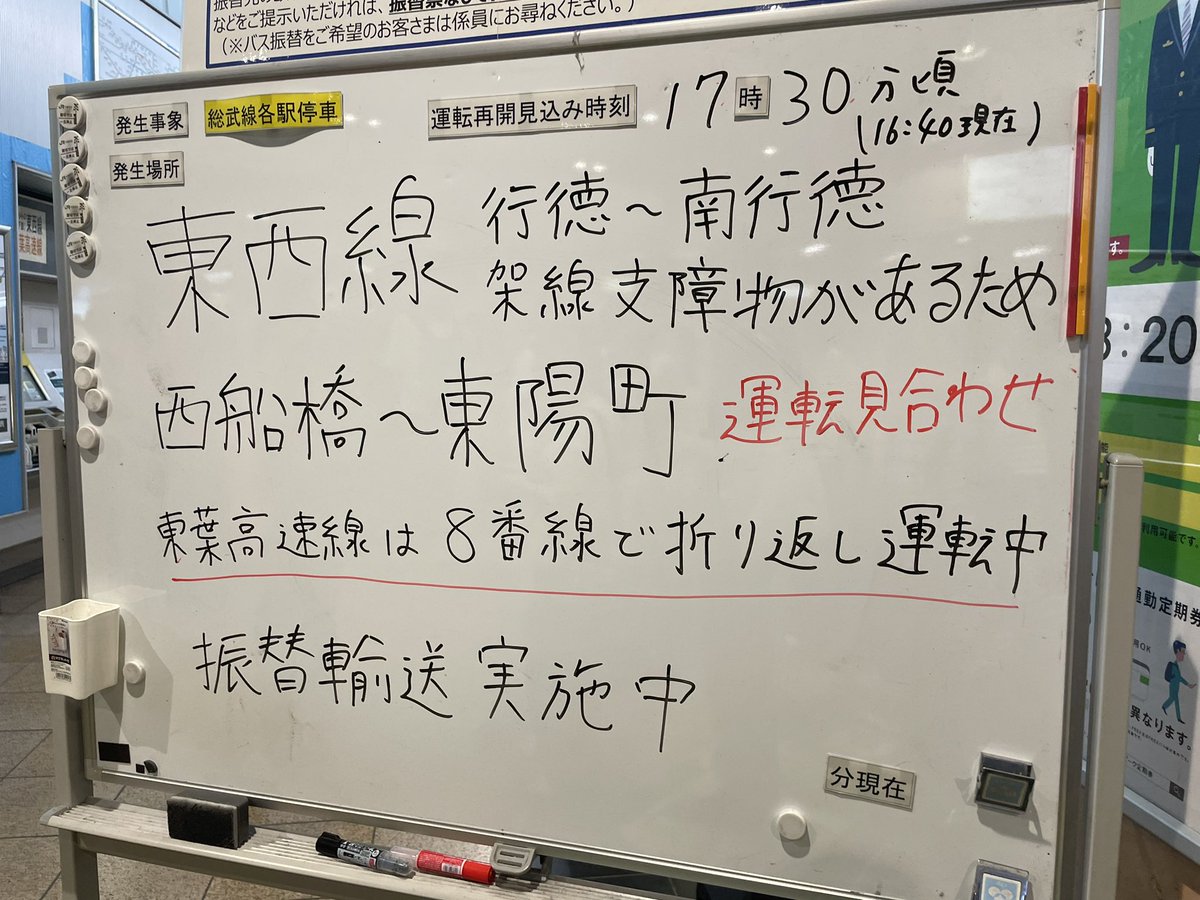 などをご提示いただければ、振替乗
(※バス振替をご希望のお客さまは係員にお尋ねください。)
発生事象
総武線各駅停車
運転再開見込み時刻
17時30分頃
(16:40現在)
発生場所
東西線
行徳～南行徳
架線支障物があるため
西船橋～東陽町 運転見合わせ
東葉高速線は8番線で折り返し運転中
振替輸送実施中
分現在
東西線
葉高速線
す。
3:20
利用可能です。
通勤定期券
異なります。